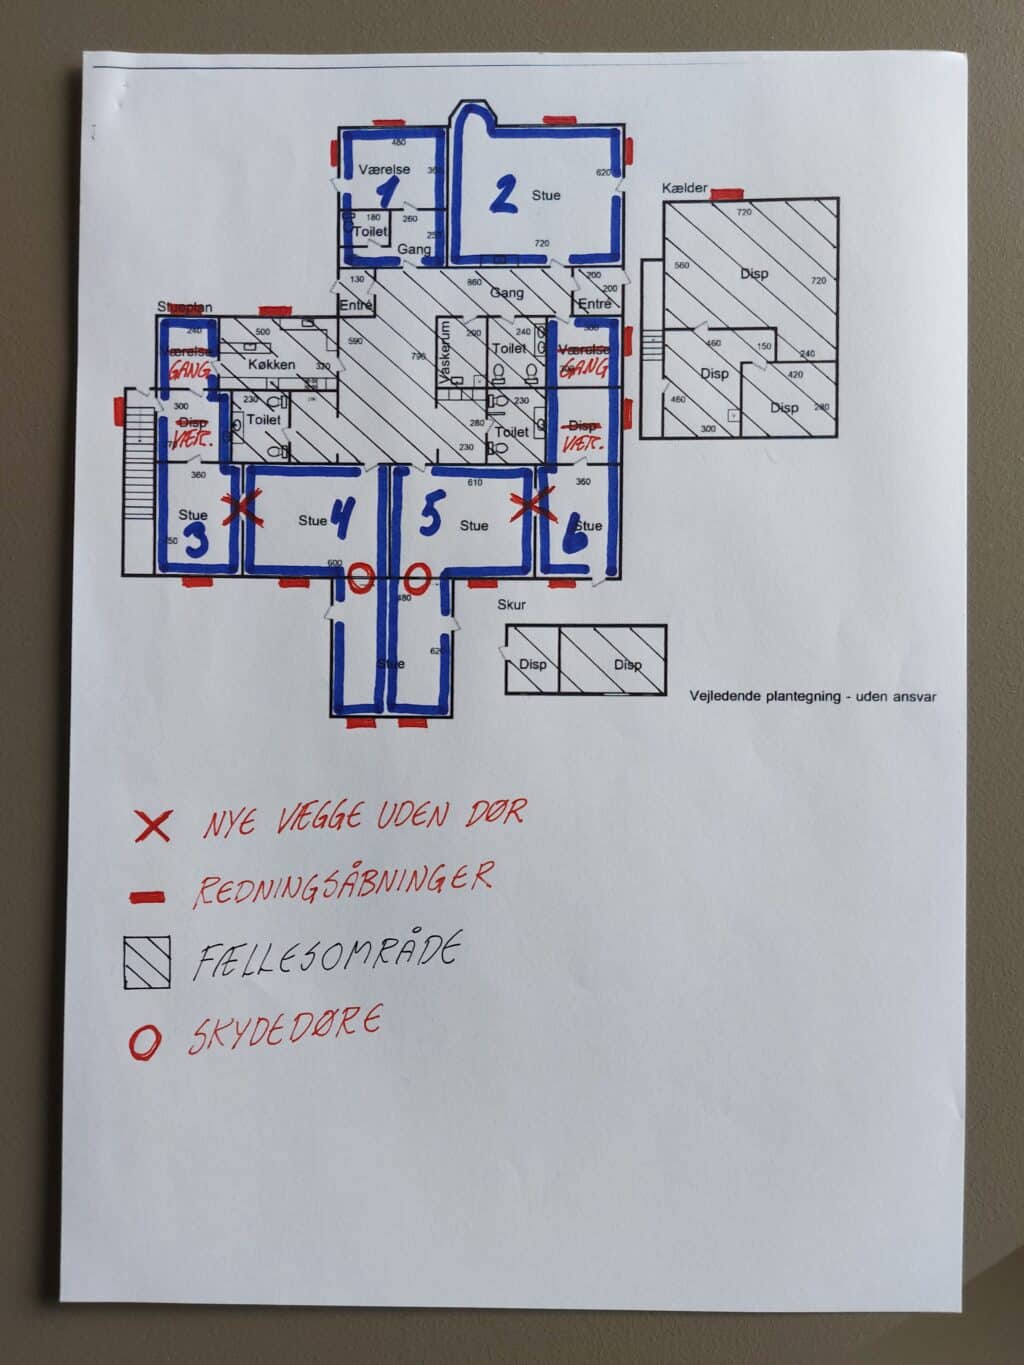 480
Værelse
1
360
620
2
Stue
Kælder
720
180
260
Toilet
Gang
720
560
Disp
720
130
860
200
Gang
200
Entré
Entré
Stueplan
240
500
590
790
Vaskerum
200
240
Toilet
Værelse
GANG
Køkken
320
Værelse
GANG
460
150
240
Disp
420
300
230
Toilet
Disp
VÆR.
280
230
Toilet
Disp
VÆR.
460
300
Disp
280
230
360
Stue
3
Stue
4
5
610
Stue
360
Stue
6
600
480
Skur
620
Stue
Disp
Disp
Vejledende plantegning - uden ansvar
NYE VÆGGE UDEN DØR
REDNINGSÅBNINGER
FÆLLESOMRÅDE
SKYDEDØRE